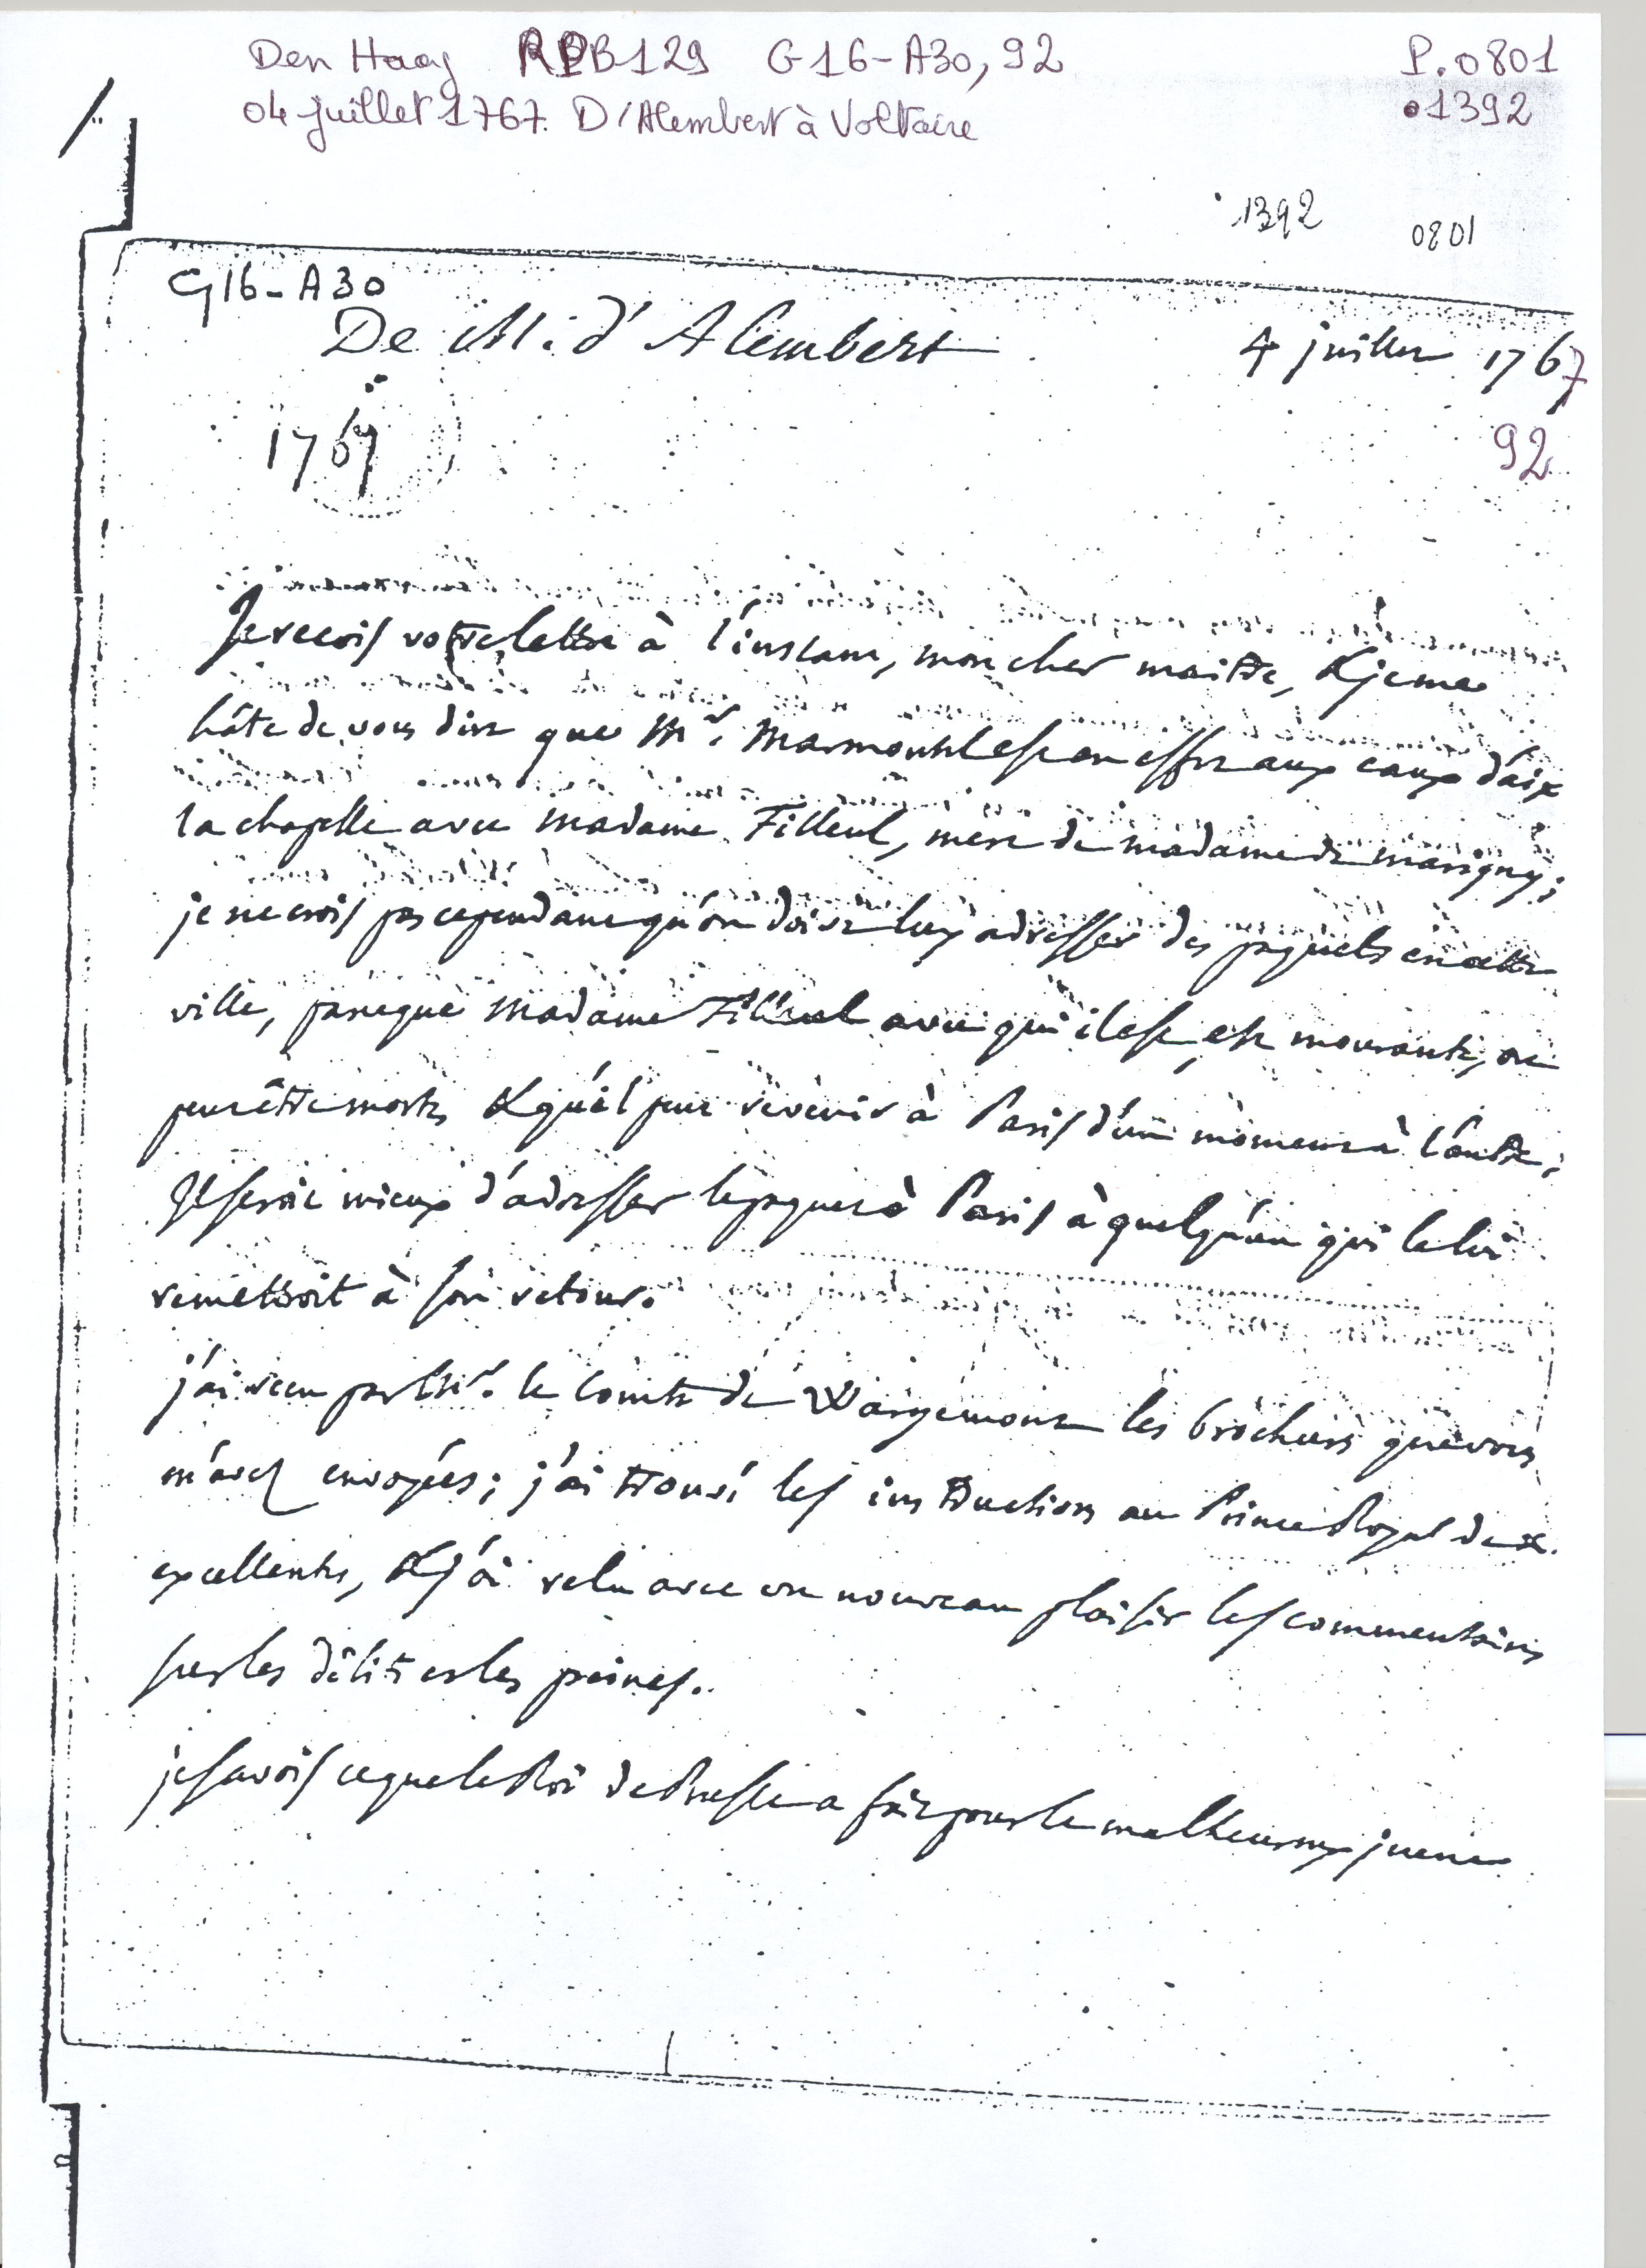 Den Haag RPB129 G16-A30, 92 P.0801
04 juillet 1767. D'Alembert à Voltaire •1392
1392 0801
G16-A30
De M. d'Alembert 4 juillet 1767
1767 92
Je recois votre lettre à l'instant, mon cher maitre, & je me
hâte de vous dire que Mr. Marmontel est en effet aux eaux d'aix
la chapelle avec Madame Filleul, mere de madame de marigny;
je ne crois pas cependant qu'on doive luy adresser des paquets en cette
ville, parceque Madame Filleul avec qui il est, est mourante, ou
peutêtre morte, & qu'il peut revenir à Paris d'un moment à l'autre;
Il seroit mieux d'adresser le paquet à Paris à quelqu'un qui le lui
remettroit à son retour.
j'ai reçu par Mr. le Comte de Wargemont les brochures que vous
m'avez envoyées; j'ai trouvé les instructions au Prince Royal de x.
excellentes, & j'ai relu avec un nouveau plaisir les commentaires
sur les délits et les peines.
je savois ce que le Roi de Prusse a fait pour le malheureux jeune